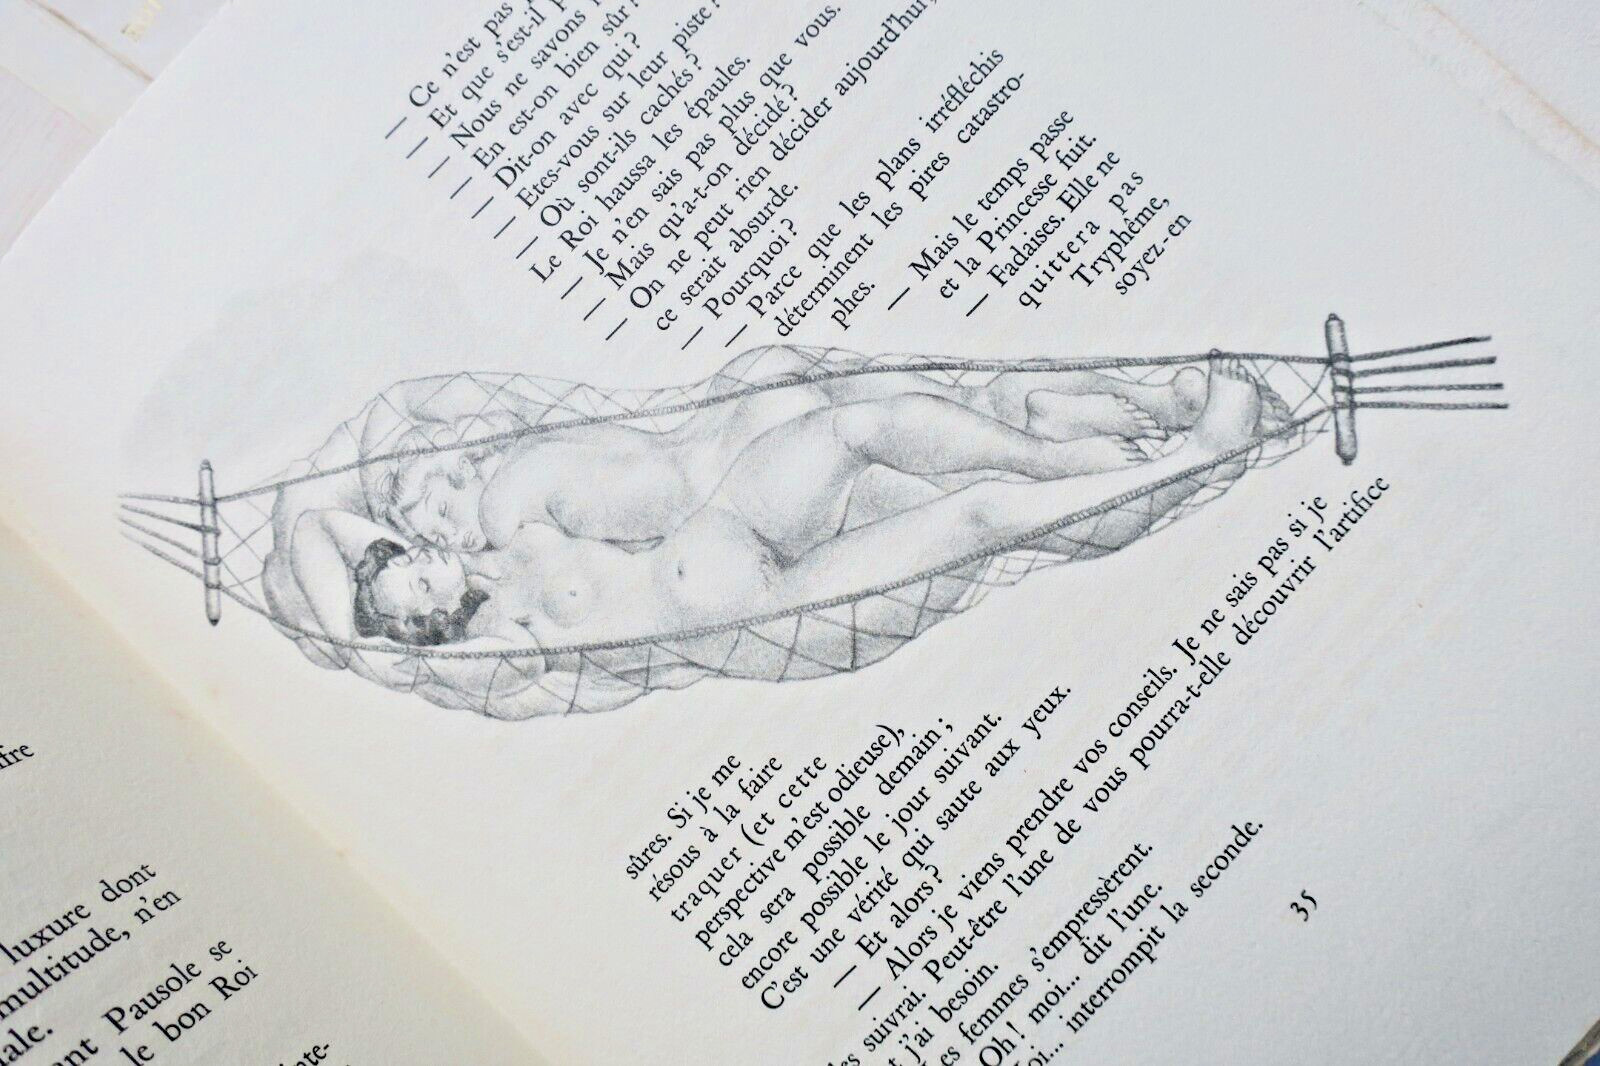 — Ce n'est pas
— Et que s'est-il
— Nous ne savons
— En est-on bien sûr?
— Dit-on avec qui?
— Etes-vous sur leur piste?
— Où sont-ils cachés?
Le Roi haussa les épaules.
— Je n'en sais pas plus que vous.
— Mais qu'a-t-on décidé?
— On ne peut rien décider aujourd'hui,
ce serait absurde.
— Pourquoi?
— Parce que les plans irréfléchis
déterminent les pires catastro-
phes.
— Mais le temps passe
et la Princesse fuit.
— Fadaises. Elle ne
quittera pas
Tryphême,
soyez-en
sûres. Si je me
résous à la faire
traquer (et cette
perspective m'est odieuse),
cela sera possible demain;
encore possible le jour suivant.
C'est une vérité qui saute aux yeux.
— Et alors?
— Alors je viens prendre vos conseils. Je ne sais pas si je
les suivrai. Peut-être l'une de vous pourra-t-elle découvrir l'artifice
j'ai besoin.
femmes s'empressèrent.
Oh! moi... dit l'une.
interrompit la seconde.
35
luxure dont
multitude, n'en
Pausole se
le bon Roi